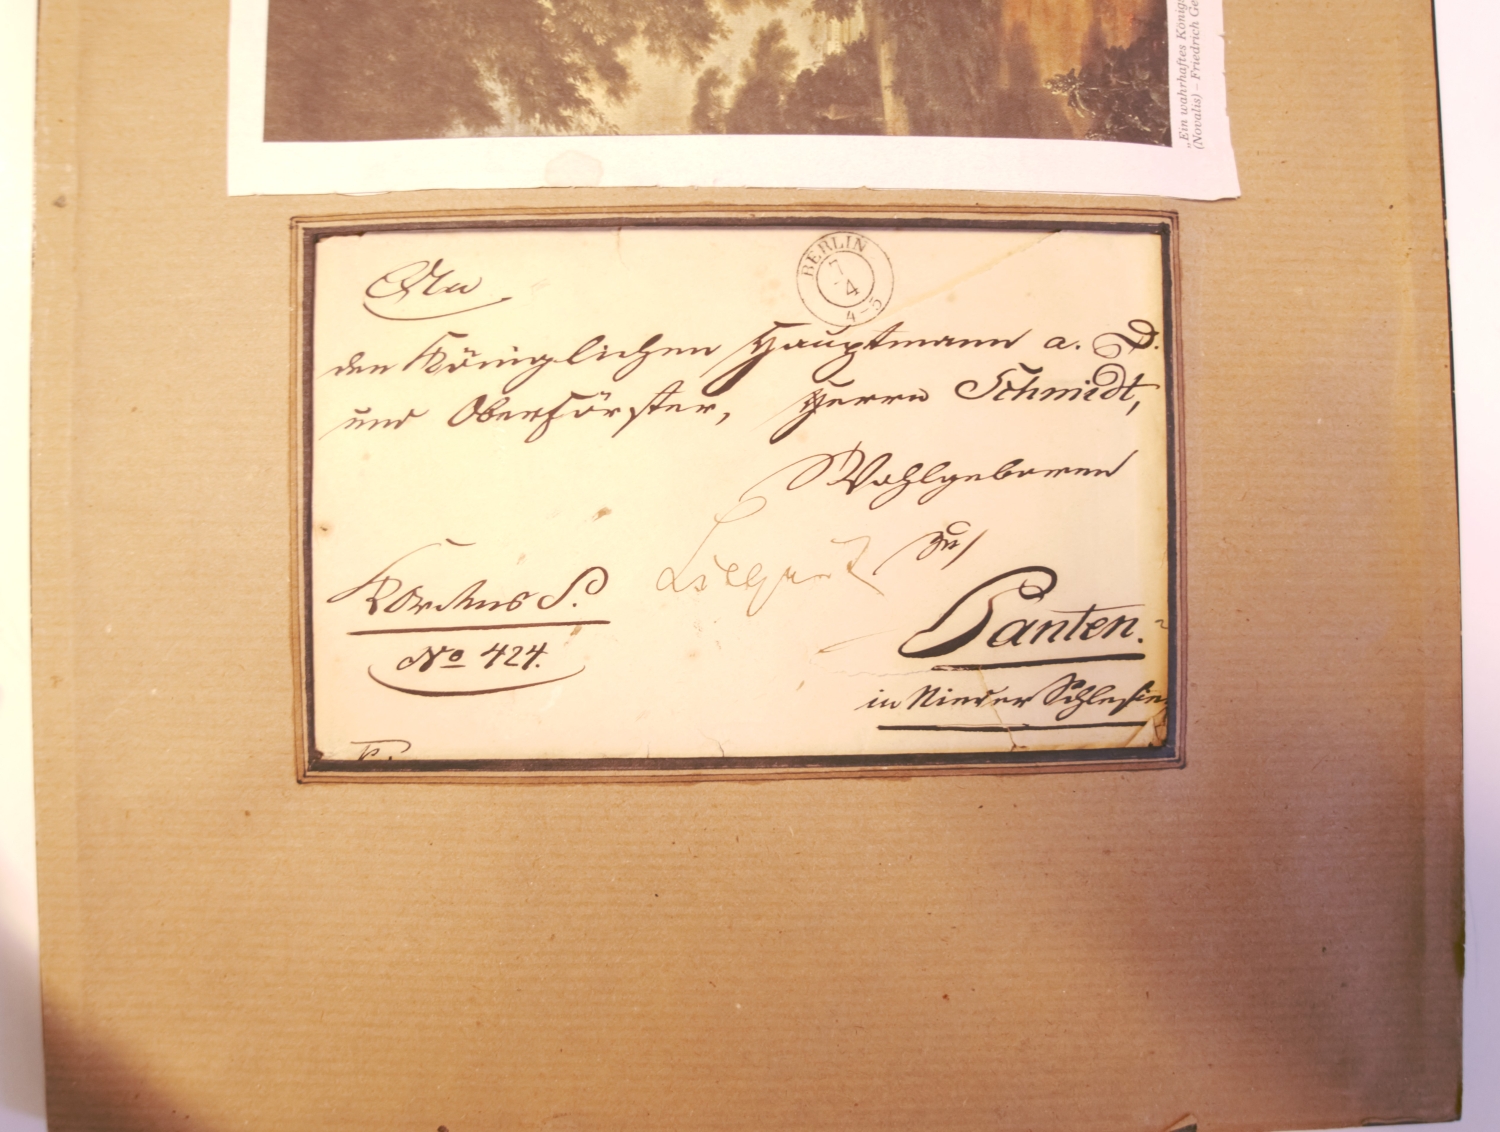 „Ein wahrhaftes König
(Novalis) – Friedrich Ge
BERLIN
7
4
4–5
An
den Königlichen Hauptmann a. D.
und Oberförster, Herrn Schmidt,
Wohlgeboren
zu
Liegnitz
Panten.
in Nieder Schlesie
No 424.